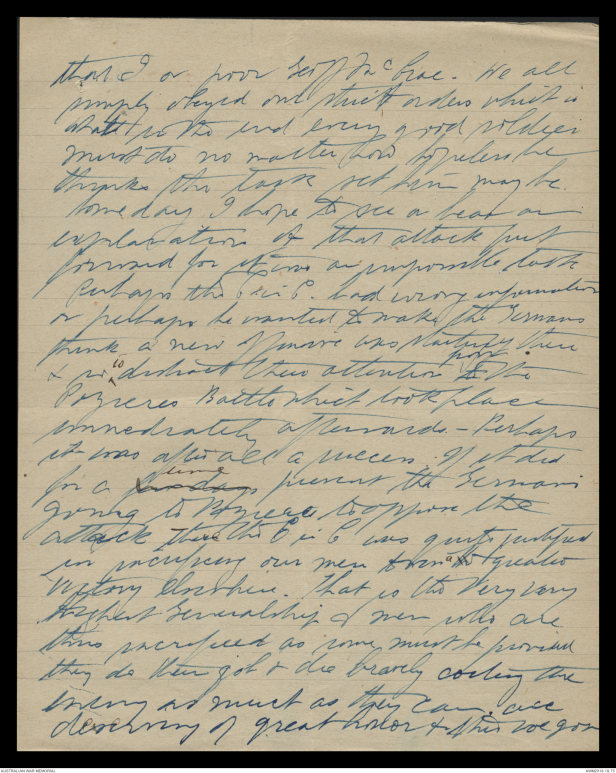 that I or poor Geoff McCrae. We all
simply obeyed our strict orders which is
what in the end every good soldier
must do no matter how hopeless he
thinks the task set him may be.
Some day I hope to see or hear an
explanation of that attack put
forward for it was an impossible task
Perhaps the C in C. had wrong information
or perhaps he wanted to make the Germans
think a new offensive was starting there
& so to distract their attention from the
Pozieres Battle which took place
immediately afterwards. - Perhaps
it was after all a success. If it did
for a time prevent the Germans
going to Pozieres to oppose the
attack there the C in C was quite justified
in sacrificing our men to win a greater
victory elsewhere. That is the very very
highest Generalship & men who are
thus sacrificed as some must be provided
they do their job & die bravely costing the
enemy as much as they can, are
deserving of great honor & this we gave
AUSTRALIAN WAR MEMORIAL